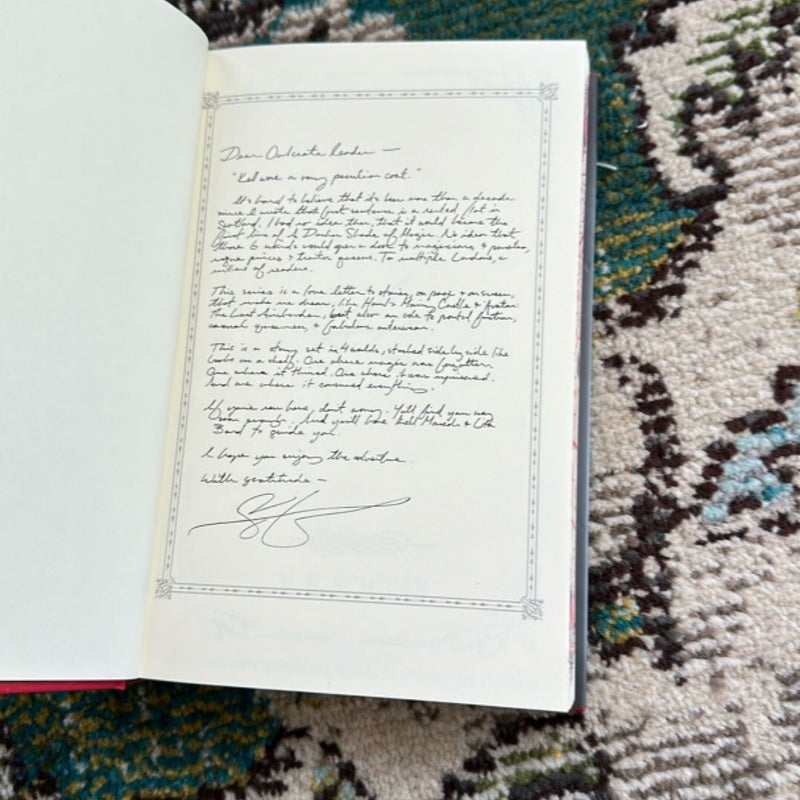 Dear Owlcrate Reader —
"Kell wore a very peculiar coat."
It's hard to believe that it's been more than a decade
since I wrote that first sentence in a rented flat in
Scotland. I had no idea then, that it would become the
first line of A Darker Shade of Magic. No idea that
those 6 words would open a door to magicians, & pirates,
rogue princes & traitor queens. To multiple Londons, a
million of readers.
This series is a love letter to stories, on page & on screen,
that make me dream, like Howl's Moving Castle & Avatar
The Last Airbender, but also an ode to portal fiction,
casual queerness, & fabulous outerwear.
This is a story set in 4 worlds, stacked side by side like
books on a shelf. One where magic was forgotten.
One where it thrived. One where it was
And one where it consumed everything.
If you're new here, don't worry. You'll find your way
And you'll have Kell Maresh & Lila
Bard to guide you.
I hope you enjoy the adventure.
With gratitude —